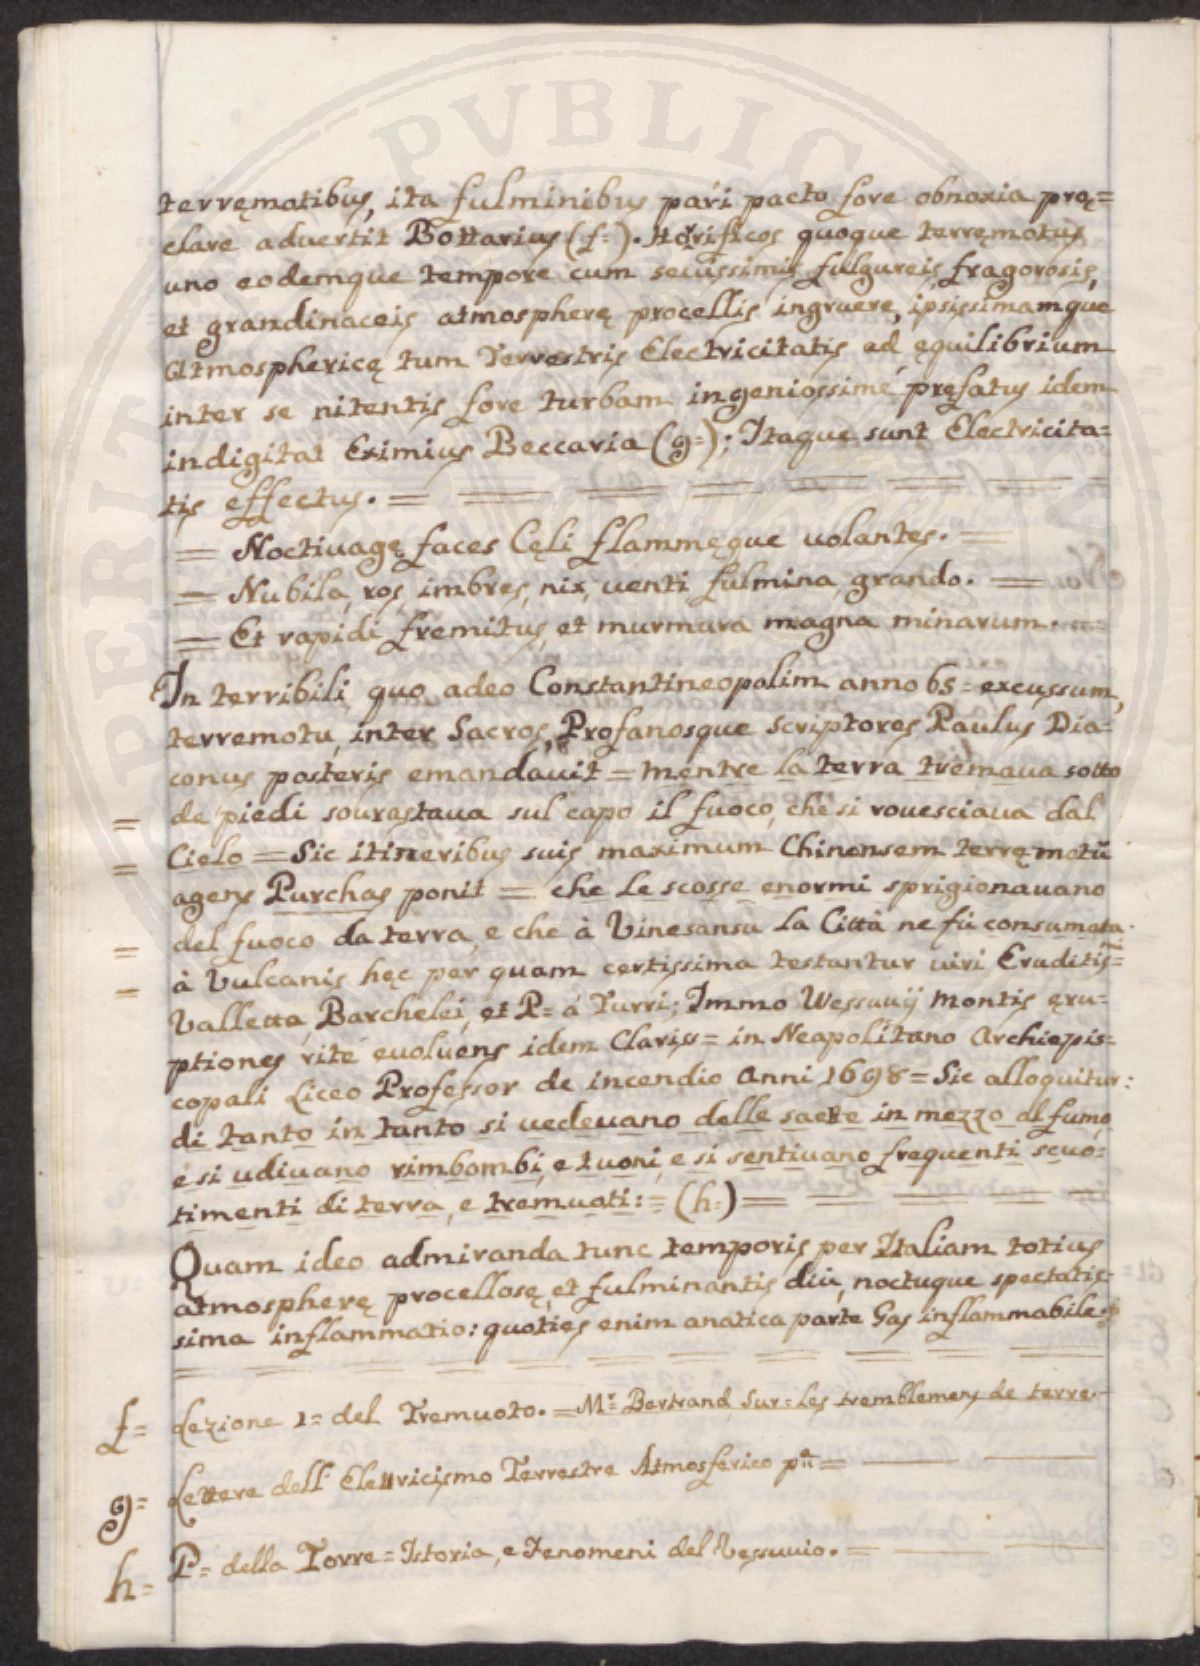 PVBLIC
PERIT
terręmotibus, ita fulminibus pari pacto fore obnoxia prę=
clare aduertit Bottarius (f=). Horificos quoque terręmotus
uno eodemque tempore cum seuissimis fulgureis, fragorosis,
et grandinaceis atmospherę procellis ingruere, ipsissimamque
Atmosphericę tum Terrestris Electricitatis ad ęquilibrium
inter se nitentis fore turbam ingeniossimé pręfatus idem
indigitat Eximius Beccaria (g=); Itaque sunt Electricita=
tis effectus. =
= Noctiuagę faces Cęli flammęque uolantes. =
= Nubila, ros, imbres, nix, uenti fulmina, grando. =
= Et rapidi fremitus, et murmura magna minarum. =
In terribili, quo adeo Constantineopolim anno 65= excussum,
terremotu, inter Sacros, Profanosque scriptores Paulus Dia=
conus posteris emandauit = mentre la terra tremaua sotto
= de piedi sourastaua sul capo il fuoco, che si rouesciaua dal
= Cielo = Sic itineribus suis maximum Chinensem terręmotũ
agens Purchas ponit = che le scosse enormi sprigionauano
= del fuoco da terra, e che à Vinesansu la Città ne fù consumata.
= à Vulcanis hęc per quam certissima testantur uiri Eruditis=mi
Valletta, Barchelei, et P= á Turri; Immo Wessuuij montis ęru=
ptiones rité euoluens idem Clariss= in Neapolitano Archiepis=
copali Liceo Professor de incendio Anni 1698= Sic alloquitur:
di tanto in tanto si uedeuano delle saette in mezzo al fumo,
é si udiuano rimbombi, e tuoni, e si sentiuano frequenti scuo=
timenti di terra, e tremuoti: = (h=) =
Quam ideo admiranda tunc temporis per Italiam totius
atmospherę procellosę, et fulminantis diù, noctuque spectatis=
sima inflammatio: quoties enim anatica parte Gas inflammabile
f= Lezione 1= del Tremuoto. = Mr Bertrand Sur= les tremblemens de terre.
g= Lettere dell' Elettricismo Terrestre Atmosferico pa =
h= P= della Torre = Istoria, e Fenomeni del Vessuuio. =